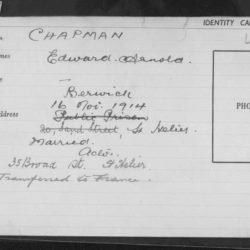 IDENTITY CA
CHAPMAN
mes
Edward Arnold.
Berwick
16 Nov. 1914
Public Prison
ddress
Sand Street, St Helier
PHO
Married.
Actor.
35 Broad St. St Helier.
Transferred to France.